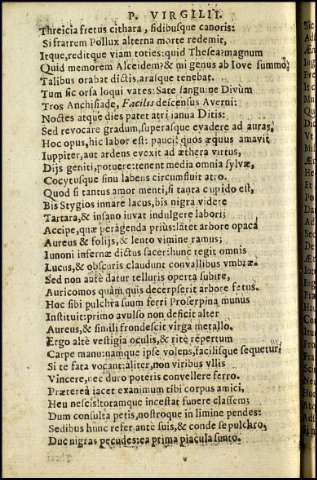 P. VIRGILII.
Threicia fretus cithara, fidibusque canoris:
Si fratrem Pollux alterna morte redemit,
Itque, reditque viam toties: quid Thesea? magnum
Quid memorem Alceidem? & mi genus ab Iove summo?
Talibus orabat dictis, arasque tenebat.
Tum sic orsa loqui vates: Sate sanguine Divûm
Tros Anchisiade, Facilis descensus Averni:
Noctes atque dies patet atri ianua Ditis:
Sed revocare gradum, superasque evadere ad auras,
Hoc opus, hic labor est: pauci: quos æquus amavit
Iuppiter, aut ardens evexit ad æthera virtus,
Dijs geniti, potuere: tenent media omnia sylvæ,
Cocytusque sinu labens circumfluit atro.
Quod si tantus amor menti, si tanta cupido est,
Bis Stygios innare lacus, bis nigra videre
Tartara, & insano iuvat indulgere labori:
Accipe, quæ peragenda prius: latet arbore opaca
Aureus & folijs, & lento vimine ramus;
Iunoni infernæ dictus sacer: hunc tegit omnis
Lucus, & obscuris claudunt convallibus vmbræ.
Sed non ante datur telluris operta subire,
Auricomos quàm quis decerpserit arbore fetus.
Hoc sibi pulchra suum ferri Proserpina munus
Instituit: primo avulso non deficit alter
Aureus, & simili frondescit virga metallo.
Ergo altè vestigia oculis, & ritè repertum
Carpe manu: namque ipse volens, facilisque sequetur,
Si te fata vocant: aliter, non viribus vllis
Vincere, nec duro poteris convellere ferro.
Prætereà iacet exanimum tibi corpus amici,
Heu nescis! totamque incestat funere classem:
Dum consulta petis, nostroque in limine pendes:
Sedibus hunc refer ante suis, & conde sepulchro,
Duc nigras pecudes: ea prima piacula sunto.